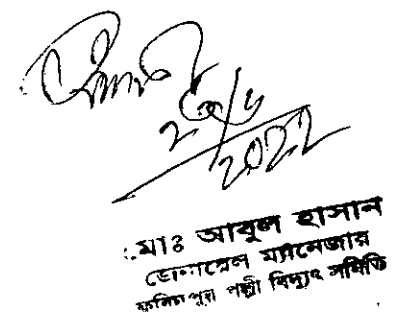 ২০২২
মোঃ আবুল হাসান
জেনারেল ম্যানেজার
ফরিদপুর পল্লী বিদ্যুৎ সমিতি